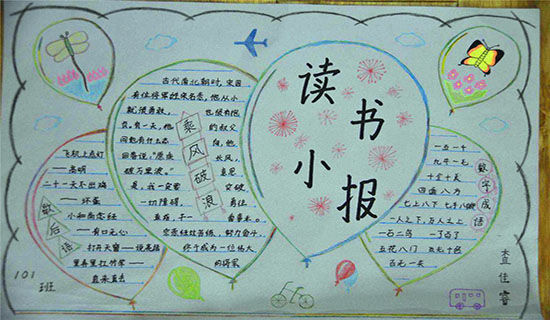 读书
小报
歇后语
飞机上点灯
——高明
二十一天不出鸡
——坏蛋
小和尚念经
——有口无心
打开天窗——说亮话
里弄里扛竹竿
——直来直去
乘风破浪
古代南北朝时,宋国
有位将军姓宗名悫,他从小
就很勇敢,也很有抱
负。有一天,他的叔父
问他有什么志向,他
回答说,"愿乘长风,
破万里浪。"意思
是,我一定要突破
一切障碍,勇往
直前,干一番事业。
宗悫经过苦练,努力奋斗,
终于成为一位伟大
的将军
数字成语
一五一十
九牛一毛
十全十美
四面八方
七上八下 七手八脚
一人之下,万人之上
一石二鸟 一了百了
五花八门 五光十色
百无一失
101
班
查佳睿